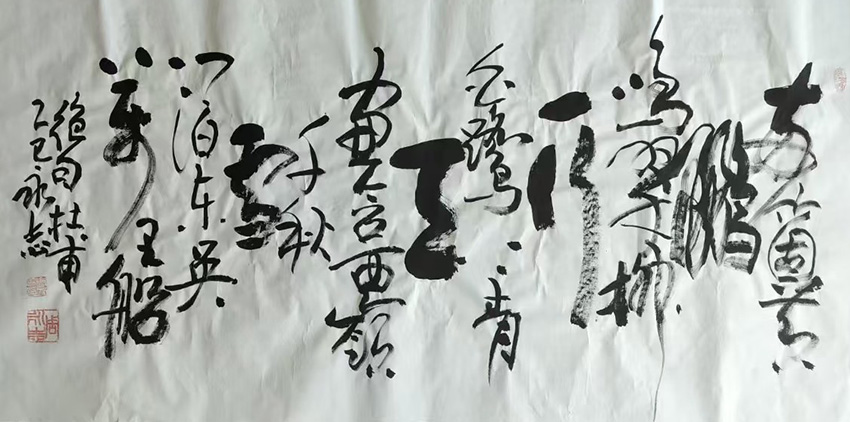 两箇黄
鹂
鸣翠柳
一行
白鹭上青
天
窗含西岭
千秋
雪
门泊东吴
萬里船
绝句杜甫
乙巳永